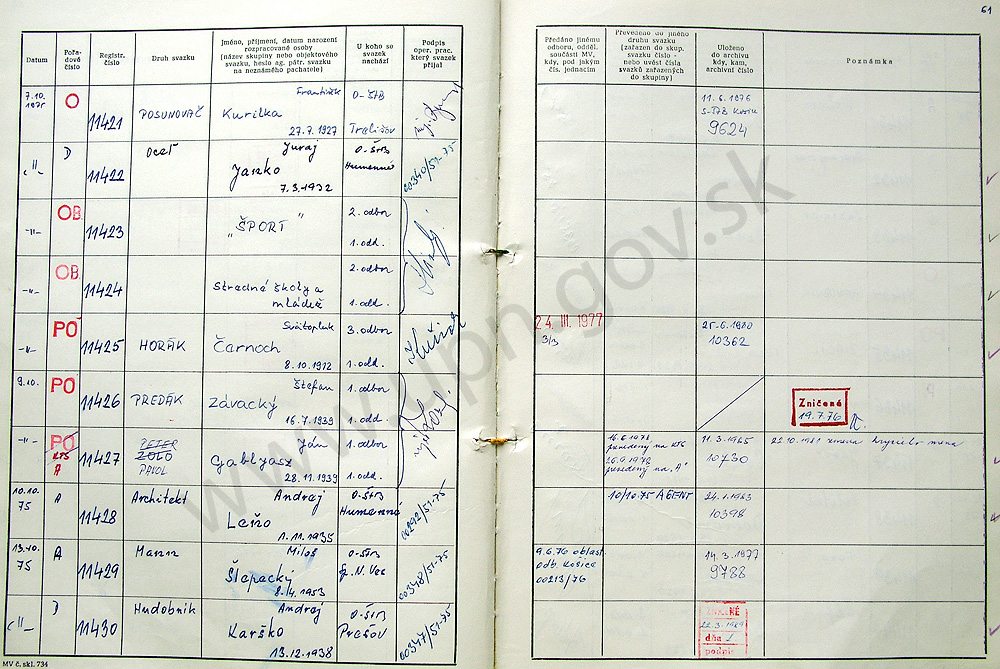 61
Datum
Pořadové číslo
Registr. číslo
Druh svazku
Jméno, příjmení, datum narození
rozpracované osoby
(název skupiny nebo objektového
svazku, heslo ag. pátr. svazku
na neznámého pachatele)
U koho se
svazek
nachází
Podpis
oper. prac.
který svazek
přijal
Předáno jinému
odboru, odděl.
součásti MV,
kdy, pod jakým
čís. jednacím
Převedeno do jiného
druhu svazku
(zařazen do skup.
svazku číslo -
nebo uvést čísla
svazků zařazených
do skupiny)
Uloženo
do archivu
kdy, kam,
archivní číslo
Poznámka
7.10.
1975
O
11421
POSUNOVAČ
František
Kurilka
27.7.1927
O-ŠtB
11.6.1976
9624
-"-
D
11422
Ocel
Juraj
Janko
7.3.1932
O-ŠtB
Humenné
00340/51-75
-"-
OB.
11423
"ŠPORT"
2. odbor
1. odd.
-"-
OB.
11424
Stredné školy a
mládež
2. odbor
1. odd.
-"-
PO
11425
HORÁK
Svätopluk
Čarnoch
8.10.1912
3. odbor
1. odd.
24. III. 1977
25.6.1980
10362
9.10.
PO
11426
PREDÁK
Štefan
Závacký
16.7.1939
1. odbor
1. odd.
Zničené
19.7.76
-"-
PO
KTS
A
11427
PETER
ZOLO
PAVOL
Ján
Gablyasz
28.11.1939
1. odbor
1. odd.
16.6.1978
prevedený na KTS
26.9.1978
prevedený na "A"
11.3.1985
10730
22.10.1981 zmena krycieho mena
10.10.
75
A
11428
Architekt
Andrej
Leňo
1.11.1935
O-ŠtB
Humenné
00292/51-75
10/10-75 AGENT
24.1.1983
10398
13.10.
75
A
11429
Mann
Miloš
Šlapecký
8.4.1953
O-ŠtB
Sp. N. Ves
00348/51-75
9.6.76 oblast
odb. Košice
00213/76
14.3.1977
9788
-"-
D
11430
Hudobník
Andrej
Karško
13.12.1938
O-ŠtB
Prešov
00347/51-75
ZNIČENÉ
22.3.1989
dňa
podpis
MV č. skl. 734
www.upn.gov.sk